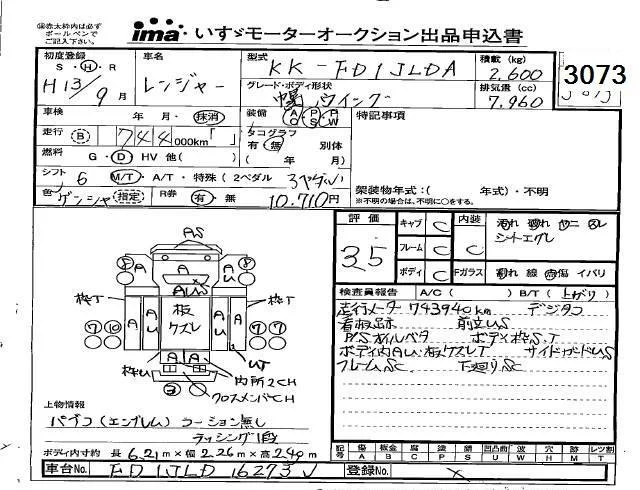 ※赤太枠内は必ず
ボールペンで
ご記入下さい。
ima いすゞモーターオークション出品申込書
3073
初度登録 S・H・R H13/9月
車名 レンジャー
型式 KK-FD1JLDA
積載(kg) 2,600
グレード・ボディ形状 中幅 バウイング
排気量(cc) 7,960
車検 年・月・抹消
装備 AC PS PW
特記事項
走行 B 744 000km「 」
タコグラフ 有・無 別体
燃料 G・D・HV 他( )
( 年 月)
シフト 6 M/T・A/T・特殊(2ペダル 3ペダル)
架装物年式:( 年式)・不明
※不明の場合は、不明に○をする。
色 ゲンシャ (指定) R券 有・無 10,710円
評価 3.5
キャブ C 内装 C
フレーム C
ボディ C Fガラス
汚れ 破れ ヤニ スレ
シートエグレ
割れ 線 傷 イバリ
検査員報告 A/C( ) B/T(上がり)
走行メーター743940km デジタコ
看板跡 前立US
P/Sオイルベタ ボディ枠S.T
ボディ内AU・板ケズレT サイドガードUS
フレームSC 下廻りSC
AS
S A A U S
AUS
枠T 板 ケズレ 枠T
A U A U
7 10 7 10
枠U A A UT
内所2CH
クロスメンバCH
上物情報
パブコ(エンブレム) ラーション無し
ラッシング1段
ボディ内寸約 長6.21m×幅2.26m×高2.40m
記号 傷 A 板金 B 亀 C 塗 S 凹凸曲 U 波 W 穴 H 跡 M レツ割 T
車台No. FD1JLD 16273
登録No. ×